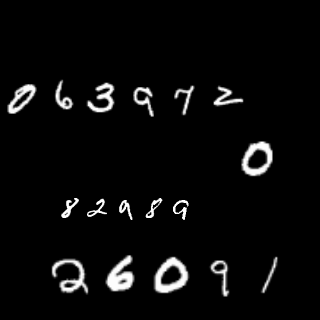 063972
0
82989
26091